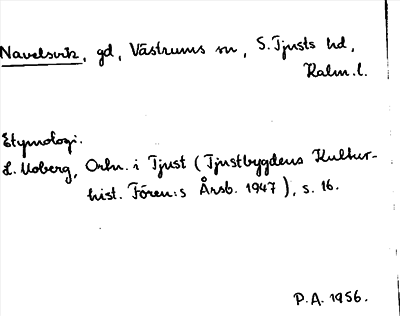 Navelsvik, gd, Västrums sn, S. Tjusts hd,
Kalm. l.
Etymologi.
L. Moberg, Ortn. i Tjust (Tjustbygdens Kultur-
hist. Fören:s Årsb. 1947), s. 16.
P. A. 1956.